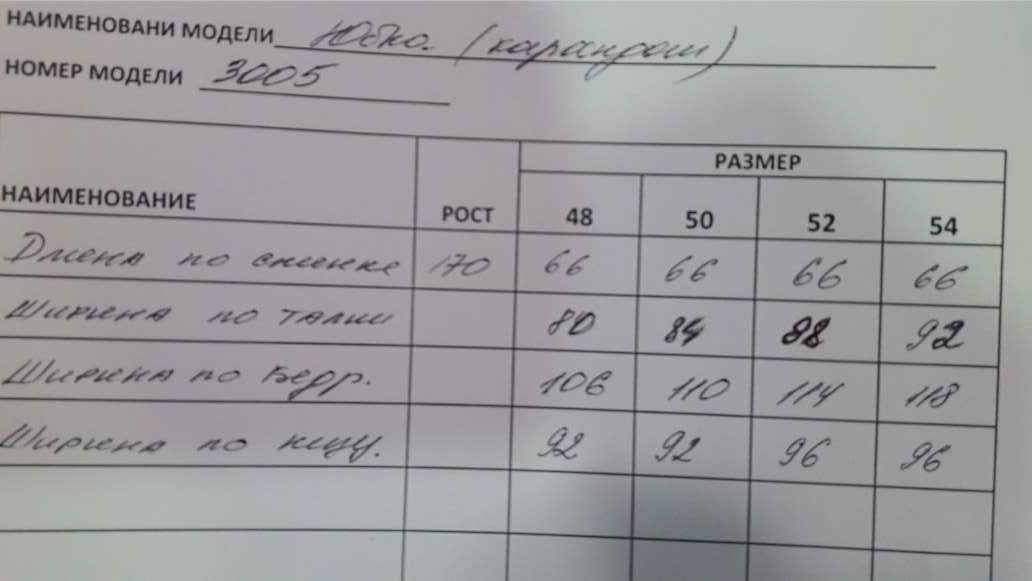 НАИМЕНОВАНИ МОДЕЛИ Юбка. (карандаш)
НОМЕР МОДЕЛИ 3005
РАЗМЕР
НАИМЕНОВАНИЕ РОСТ 48 50 52 54
Длина по спинке 170 66 66 66 66
Ширина по талии 80 84 88 92
Ширина по бедр. 106 110 114 118
Ширина по низу. 92 92 96 96